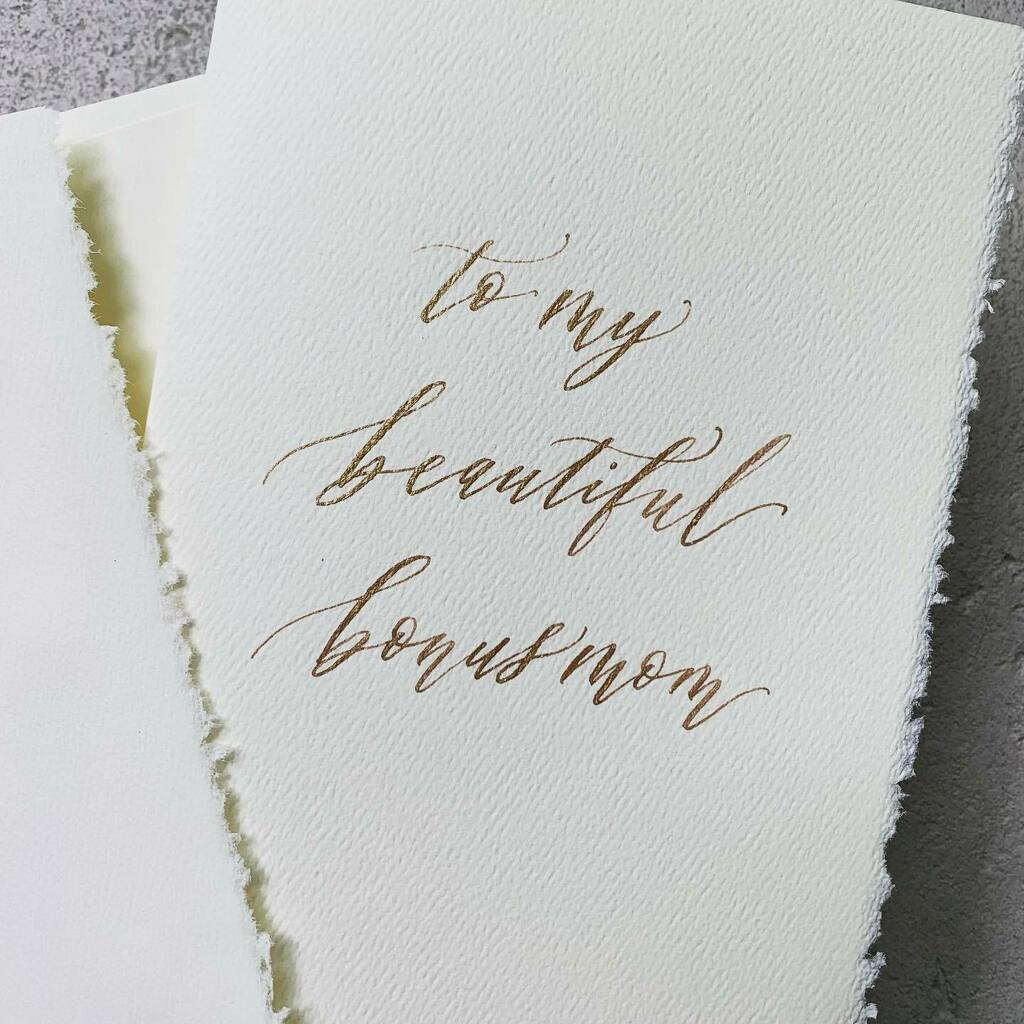 to my
beautiful
bonus mom